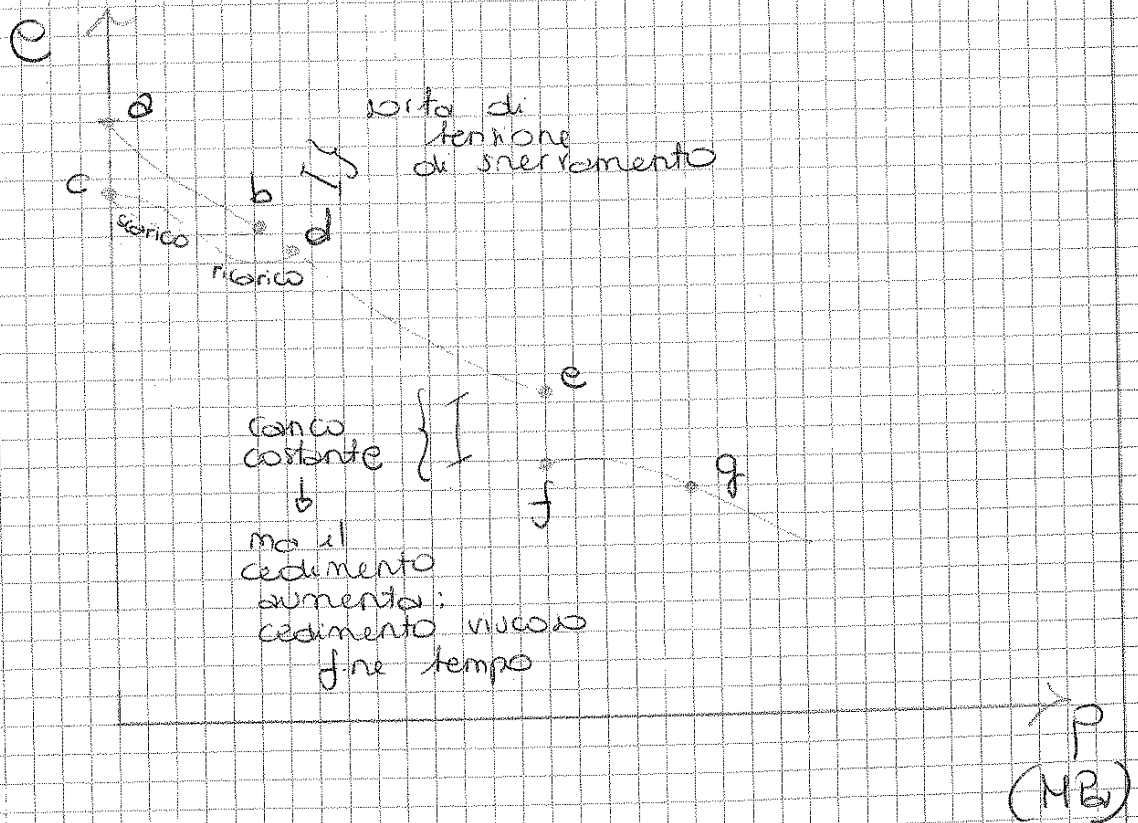 e
a
sorta di
tensione
di snervamento
c
b
d
scarico
ricarico
e
carico
costante
f
g
ma il
cedimento
aumenta:
cedimento viscoso
f.ne tempo
P
(MPa)